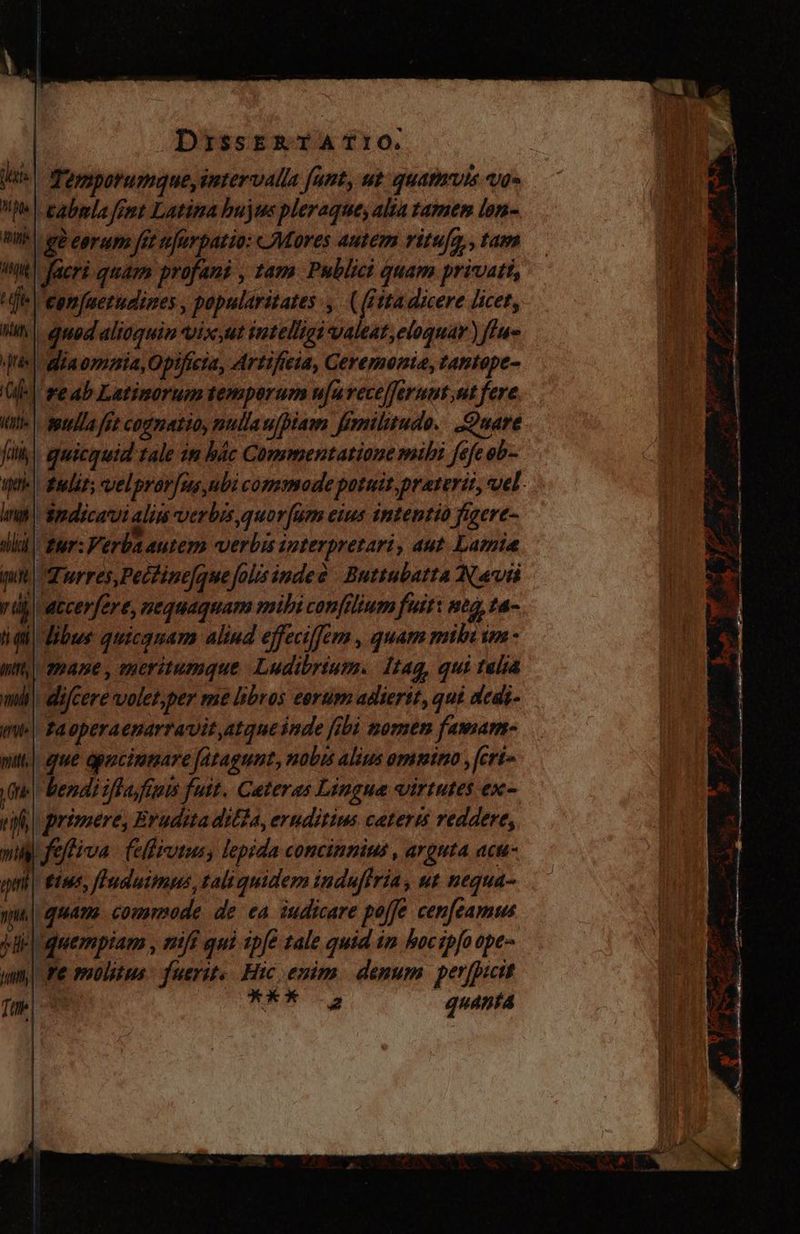 DISSERTATIO.
Temporumque, intervalla sunt, ut quamvis vo-
cabula sint Latina hujus pleraque, alia tamen lon-
gè eorum sit usurpatio: Mores autem ritusq́;, tam
sacri quàm profani, tam Publici quam privati,
consuetudines, popularitates, (si ita dicere licet,
quod alioquin vix, ut intelligi valeat, eloquar) stu-
dia omnia, Opificia, Artificia, Ceremoniæ, tantope-
re ab Latinorum temporum usu recesserunt, ut fere
nulla sit cognatio, nulla uspiam similitudo. Quare
quicquid tale in hâc Commentatione mihi sese ob-
tulit; vel prorsus, ubi commode potuit, præterii, vel
indicavi aliis verbis, quorsum eius intentio figere-
tur: Verba autem verbis interpretari, aut Lamiæ
Turres, Pectinesque solis inde è Buttubatta Nævii
accersere, nequaquam mihi consilium fuit: neq́; ta-
libus quicquam aliud effecissem, quam mihi im-
mane, meritumque Ludibrium. Itaq́;, qui talia
discere volet, per me libros eorum adierit, qui dedi-
ta opera enarravit, atque inde sibi nomen famam-
que aucinnare satagunt, nobis alius omnino, scri-
bendi ista, finis fuit. Cæteras Linguæ virtutes ex-
primere, Erudita dicta, eruditius cæteris reddere,
festiva festivius, lepida concinnius, arguta acu-
tius, studuimus, tali quidem industria, ut nequa-
quam commode de ea iudicare posse censeamus
quempiam, nisi qui ipse tale quid in hoc ipso ope-
re molitus fuerit. Hic enim denum perspicit
*** 2 quanta